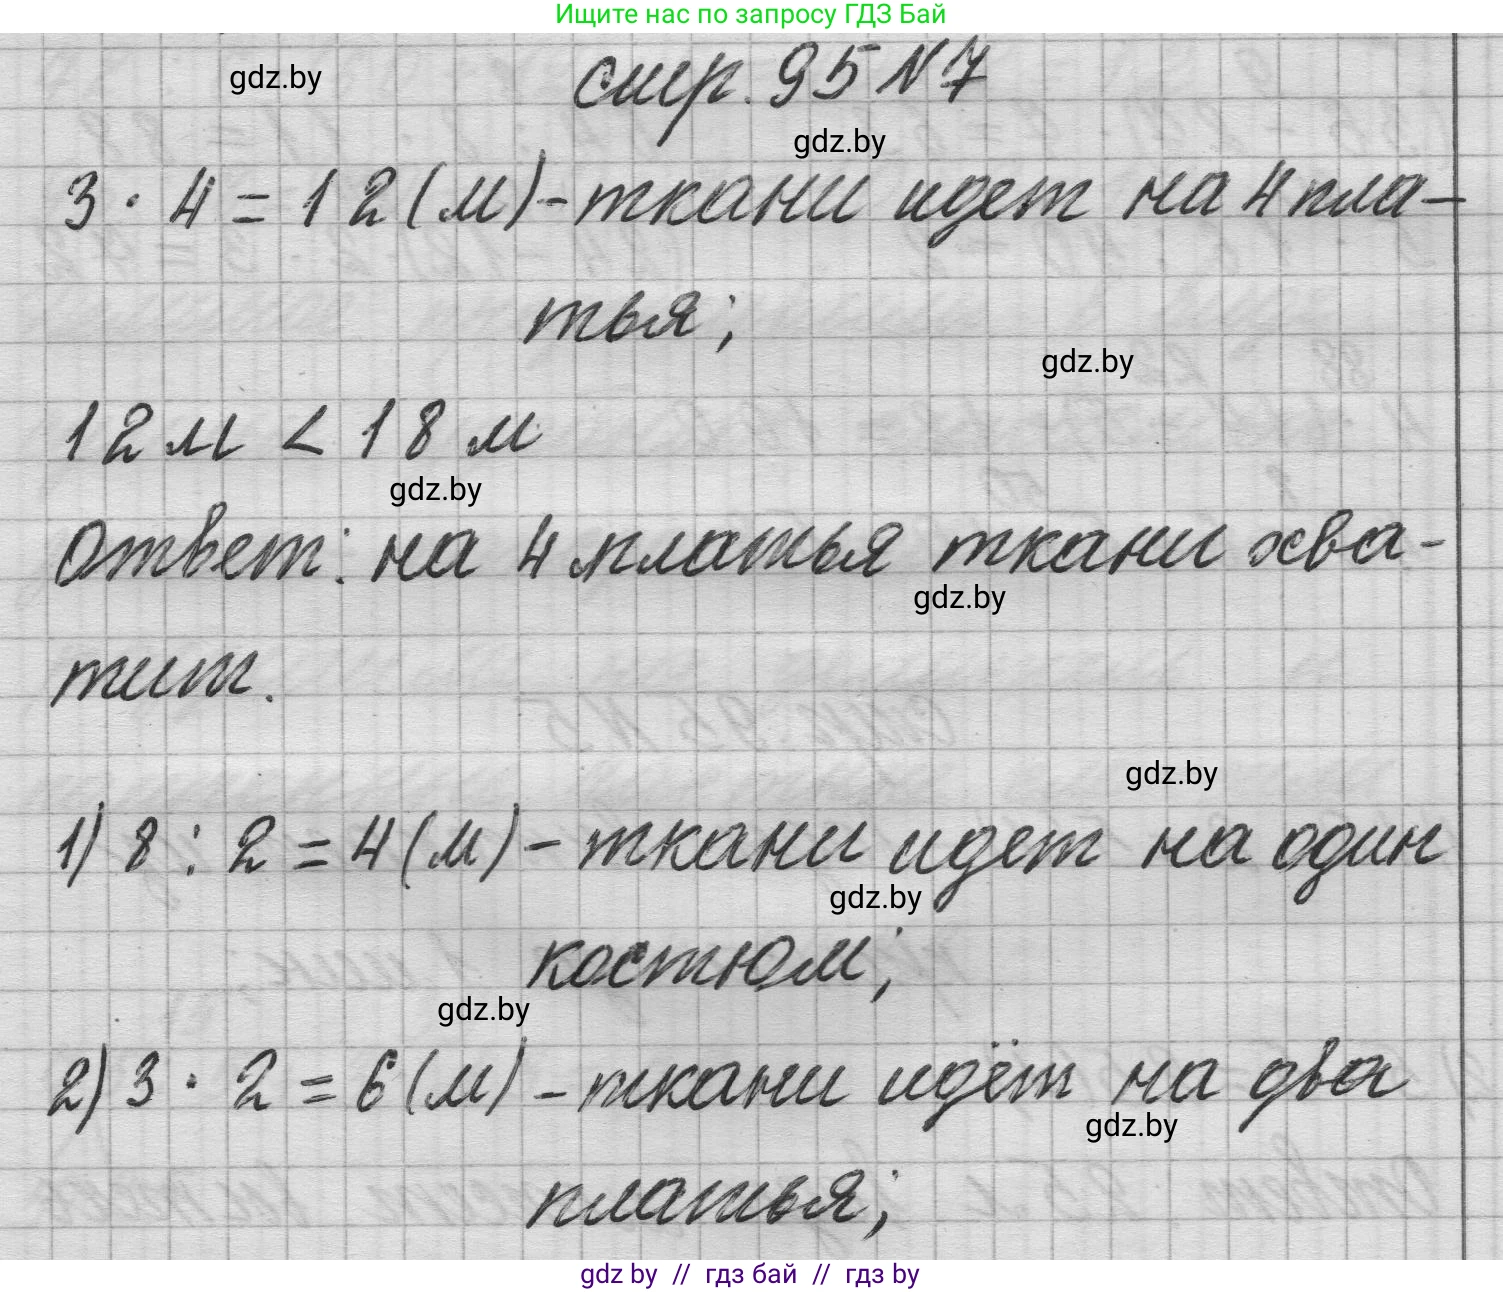 Ищите нас по запросу ГДЗ Бай
gdz.by
стр. 95 N 7
gdz.by
3 · 4 = 12 (м) - ткани идет на 4 пла-
тья;
gdz.by
12 м < 18 м
gdz.by
Ответ: на 4 платья ткани хва-
gdz.by
тит.
gdz.by
1) 8 : 2 = 4 (м) - ткани идет на один
gdz.by
костюм;
gdz.by
2) 3 · 2 = 6 (м) - ткани идёт на два
gdz.by
платья;
gdz by // гдз бай // гдз by